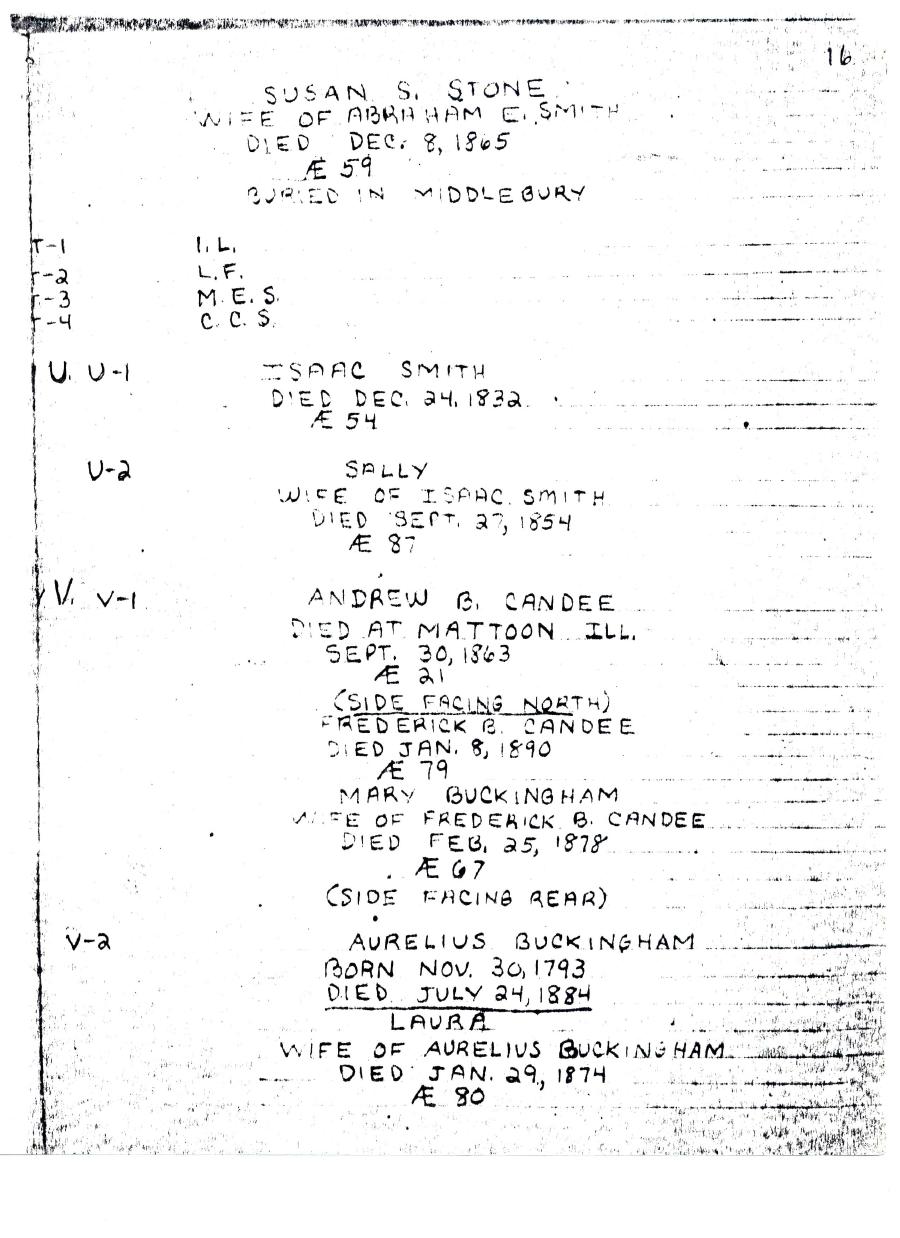 16
SUSAN S. STONE
WIFE OF ABRAHAM E. SMITH
DIED DEC. 8, 1865
Æ 59
BURIED IN MIDDLEBURY
T-1 I. L.
T-2 L. F.
T-3 M. E. S.
T-4 C. C. S.
U. U-1 ISAAC SMITH
DIED DEC. 24, 1832
Æ 54
U-2 SALLY
WIFE OF ISAAC SMITH
DIED SEPT. 27, 1854
Æ 87
V. V-1 ANDREW B. CANDEE
DIED AT MATTOON ILL.
SEPT. 30, 1863
Æ 21
(SIDE FACING NORTH)
FREDERICK B. CANDEE
DIED JAN. 8, 1890
Æ 79
MARY BUCKINGHAM
WIFE OF FREDERICK B. CANDEE
DIED FEB. 25, 1878
Æ 67
(SIDE FACING REAR)
V-2 AURELIUS BUCKINGHAM
BORN NOV. 30, 1793
DIED JULY 24, 1884
LAURA
WIFE OF AURELIUS BUCKINGHAM
DIED JAN. 29, 1874
Æ 80